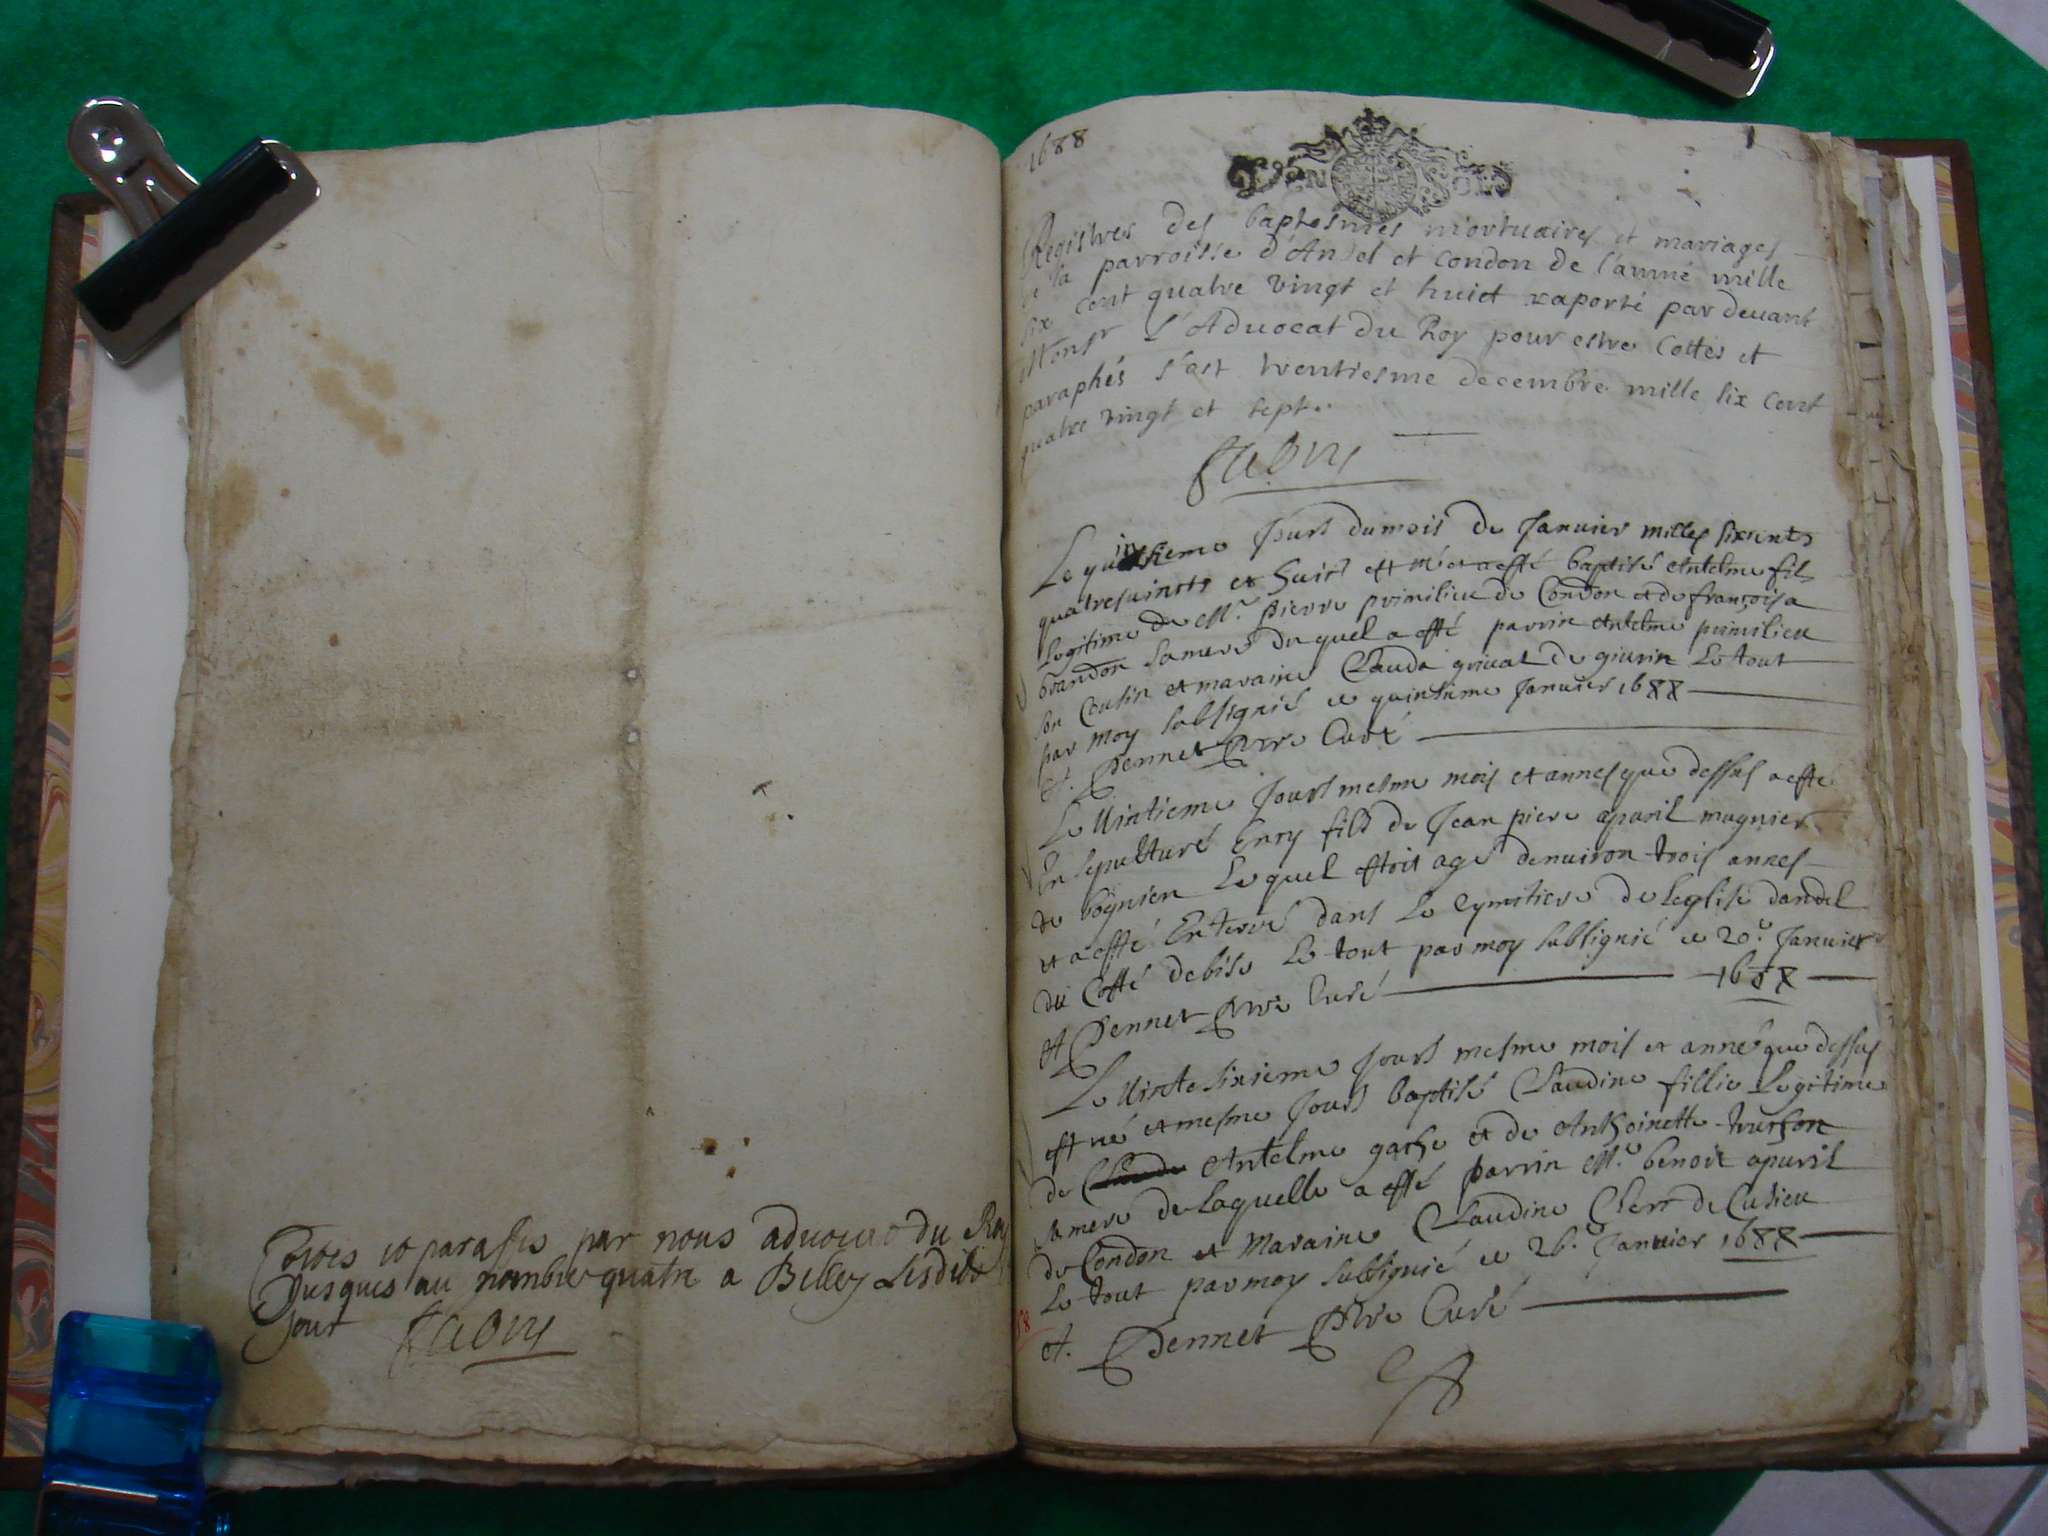 Cottés et paraffés par nous advocat du Roy
Jusques au nombre quatre a Belley Lesdits
Jour
1688
Registres des baptesmes mortuaires et mariages
de la parroisse d'Andel et Condon de l'anné mille
six cent quatre vingt et huict raporté par devant
Monsr l'Advocat du Roy pour estre Cottés et
paraphés s'ast trentiesme decembre mille six cent
quatre vingt et sept.
Le quinsieme Jours du mois de Janvier milles sixcents
quatrevincts et huict est né et a esté baptisé Antelme fils
Legitime de Mr. Pierre primilieu de Condon et de françoisa
brandon sa mere duquel a esté parrin Antelme primilieu
son Cousin et maraine Clauda grivat de giurin Le tout
par moy subsignié ce quinsieme Janvier 1688
A. Dennet Ptre Curé
Le Vintieme Jours mesme mois et annes que dessus a esté
En sepulturé Enry fils de Jean piere apvril mugnier
de bognien Lequel estoit agé denuiron trois annes
et a esté Enterré dans Le Cymitiere de Leglise dandel
du Costé de bise Le tout par moy subsignié ce 20e Janvier
A Dennet Ptre Curé 1688
Le Vintesixieme Jours mesme mois et anné que dessus
est né et mesme Jours baptisé Claudine fillie Legitime
de Antelme gache et de Anthoinette turfon
sa mere de Laquelle a esté parrin Mr. benoit apvril
de Condon et Maraine Claudine Cherr de Cusieu
Le tout par moy subsignié ce 26e Janvier 1688
A. Dennet Ptre Curé